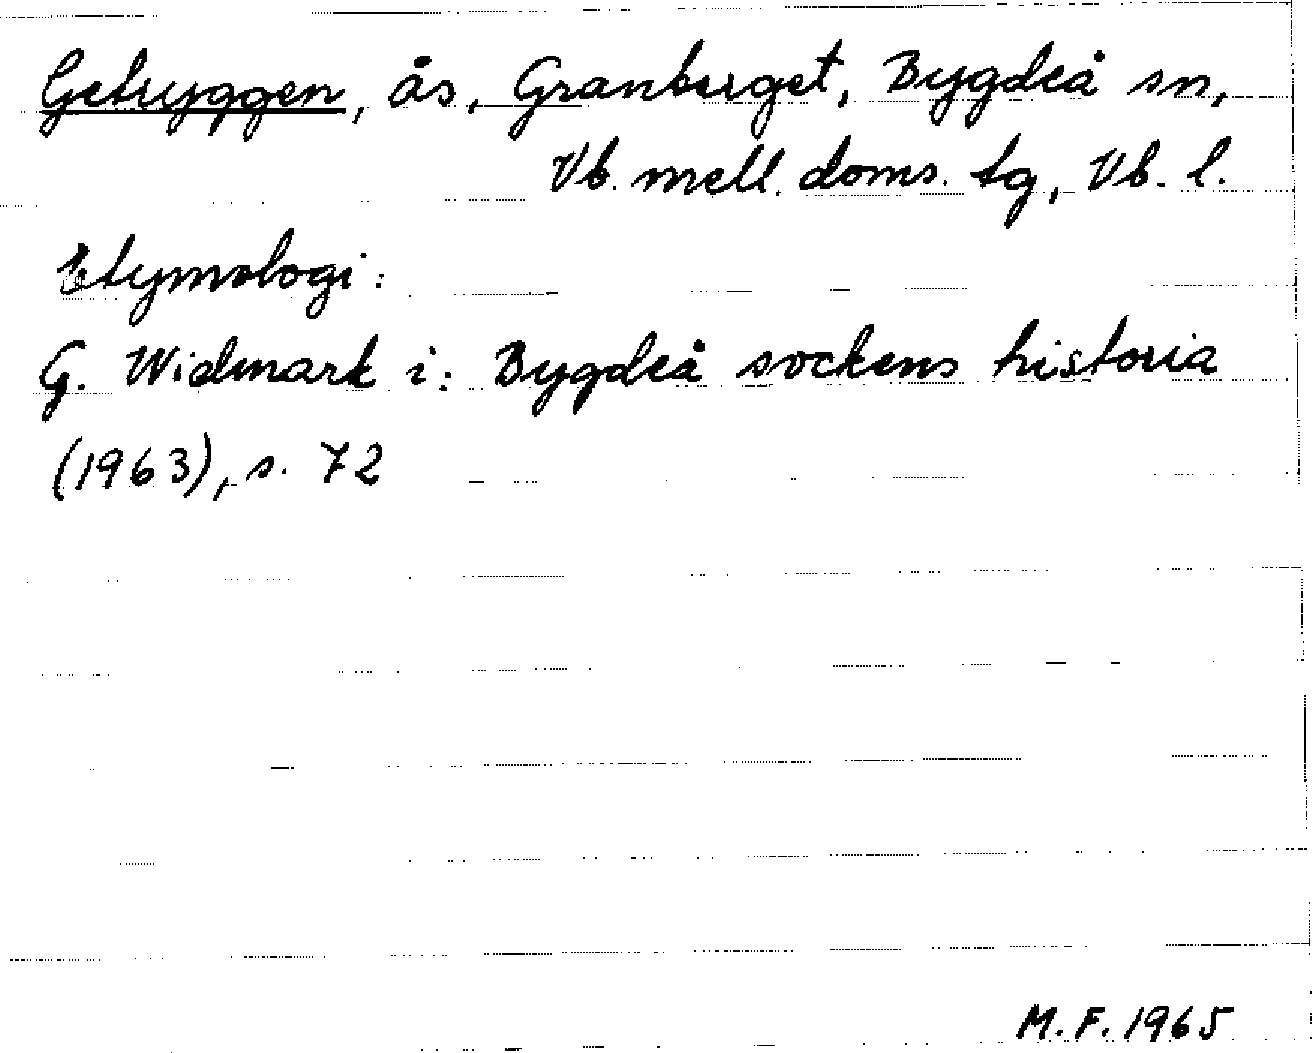 Getryggen, ås, Granberget, Bygdeå sn,
Vb. mell. doms. tg, Vb. l.
Etymologi:
G. Widmark i: Bygdeå sockens historia
(1963), s. 72
M. F. 1965